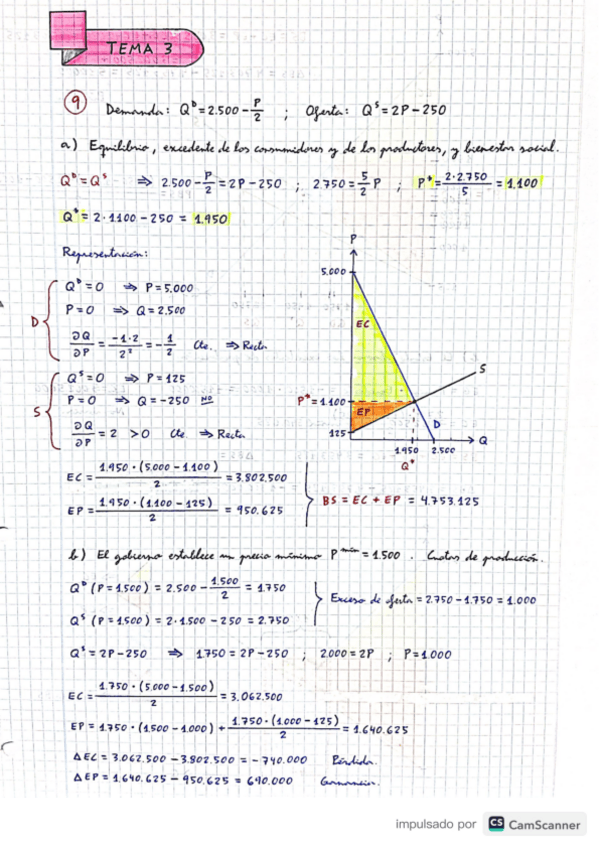 TEMA 3
9 Demanda: Qᴰ = 2.500 - P/2 ; Oferta: Qˢ = 2P - 250
a) Equilibrio, excedente de los consumidores y de los productores, y bienestar social.
Qᴰ = Qˢ ⇒ 2.500 - P/2 = 2P - 250 ; 2.750 = 5/2 P ; P* = 2·2.750/5 = 1.100
Q* = 2·1100 - 250 = 1.950
Representación:
D
Qᴰ = 0 ⇒ P = 5.000
P = 0 ⇒ Q = 2.500
∂Q/∂P = -1·2/2² = -1/2 Cte. ⇒ Recta
S
Qˢ = 0 ⇒ P = 125
P = 0 ⇒ Q = -250 NO
∂Q/∂P = 2 > 0 Cte ⇒ Recta
P
5.000
EC
S
P* = 1.100
EP
D
125
Q
1.950 2.500
Q*
EC = 1.950·(5.000 - 1.100)/2 = 3.802.500
EP = 1.950·(1.100 - 125)/2 = 950.625
BS = EC + EP = 4.753.125
b) El gobierno establece un precio mínimo Pᵐⁱⁿ = 1.500 . Cuotas de producción.
Qᴰ (P = 1.500) = 2.500 - 1.500/2 = 1.750
Qˢ (P = 1.500) = 2·1.500 - 250 = 2.750
Exceso de oferta = 2.750 - 1.750 = 1.000
Qˢ = 2P - 250 ⇒ 1.750 = 2P - 250 ; 2.000 = 2P ; P = 1.000
EC = 1.750·(5.000 - 1.500)/2 = 3.062.500
EP = 1.750·(1.500 - 1.000) + 1.750·(1.000 - 125)/2 = 1.640.625
ΔEC = 3.062.500 - 3.802.500 = -740.000 Pérdida.
ΔEP = 1.640.625 - 950.625 = 690.000 Ganancia.
impulsado por CS CamScanner